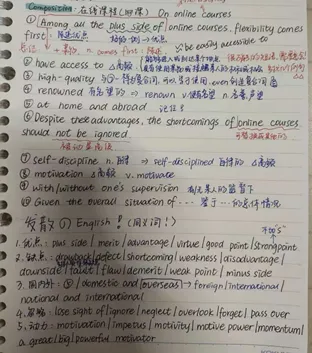 Composition: 在线课程(网课) On online courses
① Among all the plus side of online courses, flexibility comes
first
n. comes first
be easily accessible to
② have access to △高频
③ high-quality
④ renowned 有名望的 → renown n.名誉,声望
⑤ at home and abroad 记住!
⑥ Despite their advantages, the shortcomings of online courses
should not be ignored
⑦ self-discipline n.自律 → self-disciplined 自律的 △高频
⑧ motivation △高频 v. motivate
⑨ with/without one's supervision 有/无某人的监管下
⑩ Given the overall situation of ... 鉴于...的总体情况
发散① English! (同义词!)
1. 优点: plus side/merit/advantage/virtue/good point/strongpoint
2. 缺点: drawback/defect/shortcoming/weakness/disadvantage/
downside/fault/flaw/demerit/weak point/minus side
3. 国内外: ① domestic and overseas → foreign/international/
national and international
4. 忽略: lose sight of/ignore/neglect/overlook/forget/pass over
5. 动力: motivation/impetus/motivity/motive power/momentum/
a great/big/powerful motivator